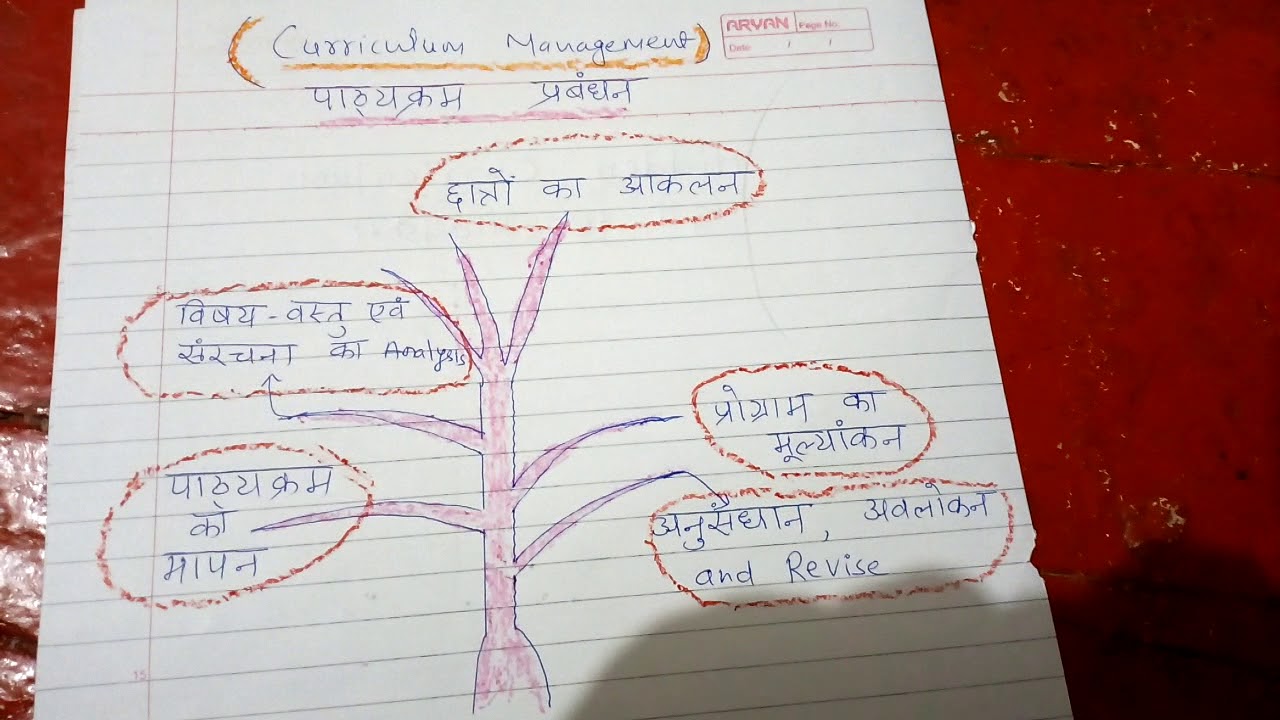 Curriculum Management
ARYAN Page No.
Date / /
पाठ्यक्रम प्रबंधन
छात्रों का आकलन
विषय-वस्तु एवं
संरचना का Analysis
प्रोग्राम का
मूल्यांकन
पाठ्यक्रम
का
मापन
अनुसंधान, अवलोकन
and Revise
15